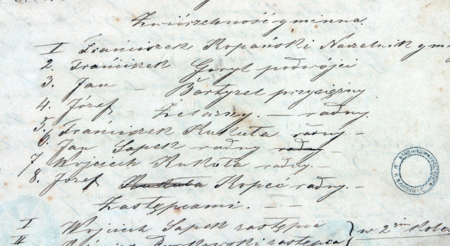 Zwierzchność gminna
I Franciszek Kopański Naczelnik gmi
2. Franciszek Goryl podwójci
3. Jan — Bartyzel przysiężny
4. Józef Żelazny — radny
5. Franciszek Kukuła radny —
6. Jan Sapek radny
7 Wojciech Kukuła radny.
8. Józef Kopeć radny. —
Zastępcami. — —
I Wojciech Sapek zastępca
II zastępca } w 2im Kole